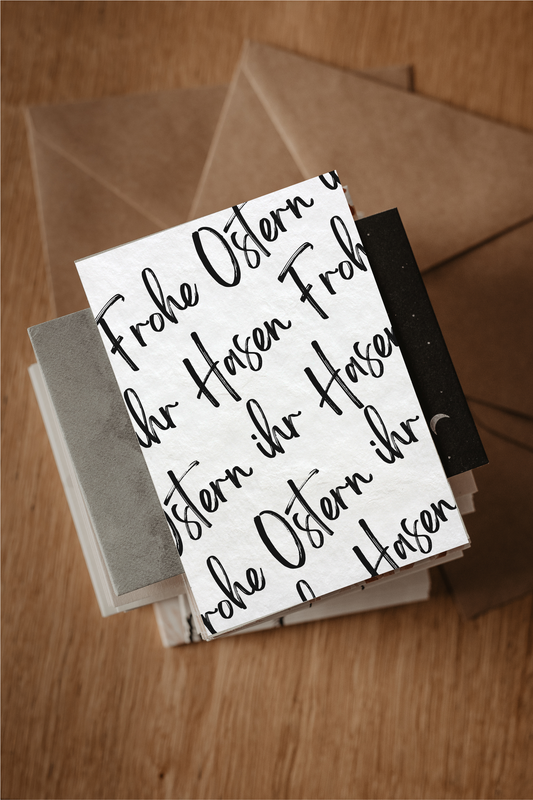 Frohe Ostern
ihr Hasen Froh
Ostern ihr Hasen
Frohe Ostern ihr
Hasen